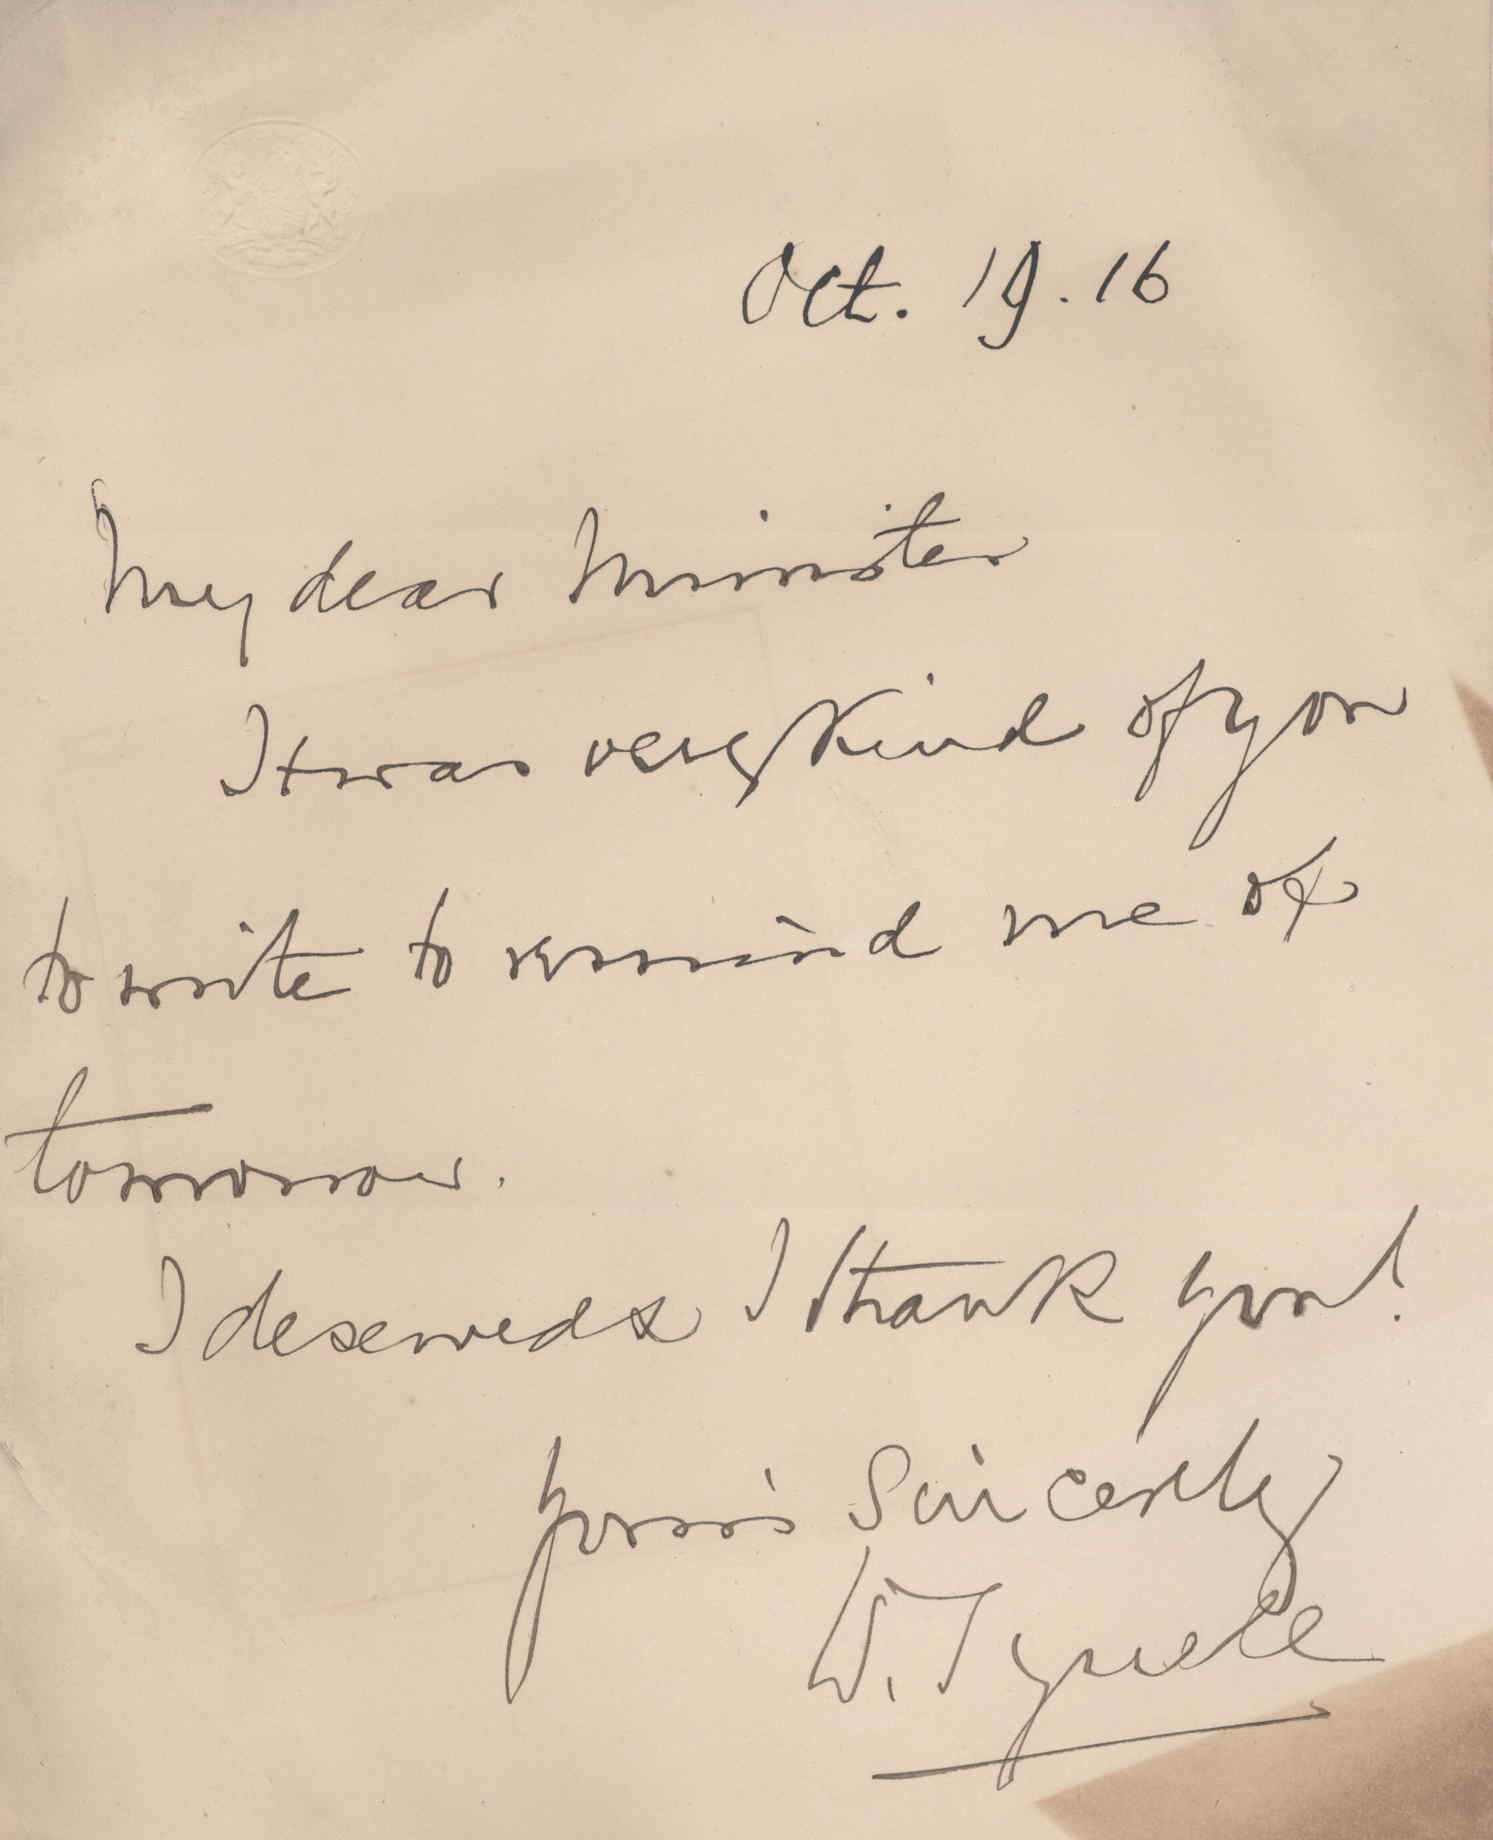 Oct. 19. 16
My dear Minister
It was very kind of you
to write to remind me of
tomorrow.
I deserved & I thank you!
Yours Sincerely
W. Tyrrell